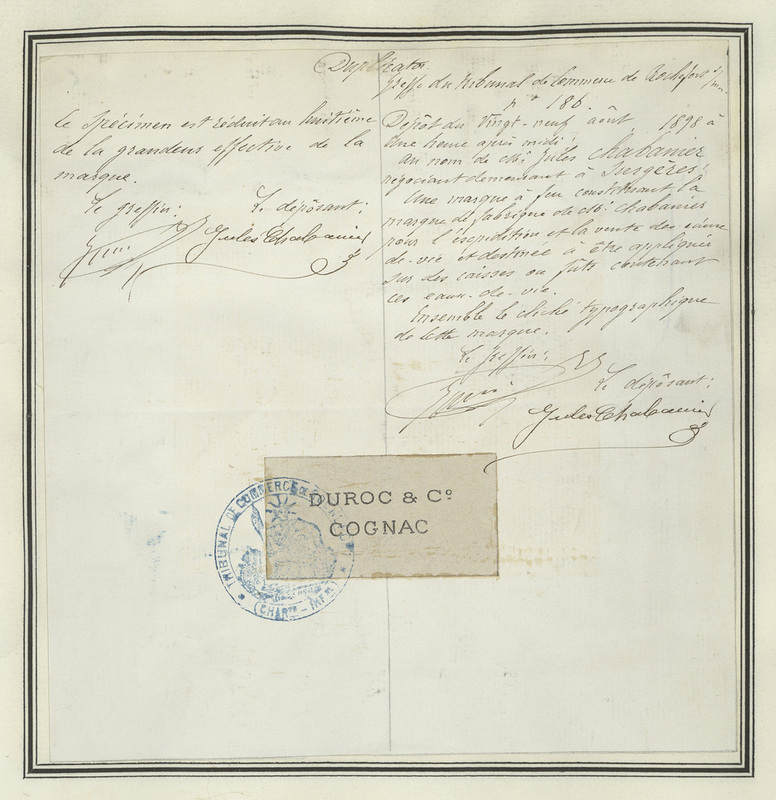 Duplicata.
Le spécimen est réduit au huitième
de la grandeur effective de la
marque.
Le greffier: Le déposant:
Jules Chabanier
Greffe du tribunal de Commerce de Rochefort s/mer.
n° 186.
Dépôt du vingt-neuf août 1898 à
une heure après midi,
au nom de Mr. Jules Chabanier
négociant demeurant à Surgères,
d'une marque à feu constituant la
marque de fabrique de Mr. Chabanier
pour l'expédition et la vente des eaux-
de-vie et destinée à être appliquée
sur des caisses ou fûts contenant
ces eaux-de-vie.
Ensemble le cliché typographique
de cette marque.
Le greffier: Le déposant:
Jules Chabanier
DUROC & Cº
COGNAC
TRIBUNAL DE COMMERCE DE
(CHARTE - INFRE)